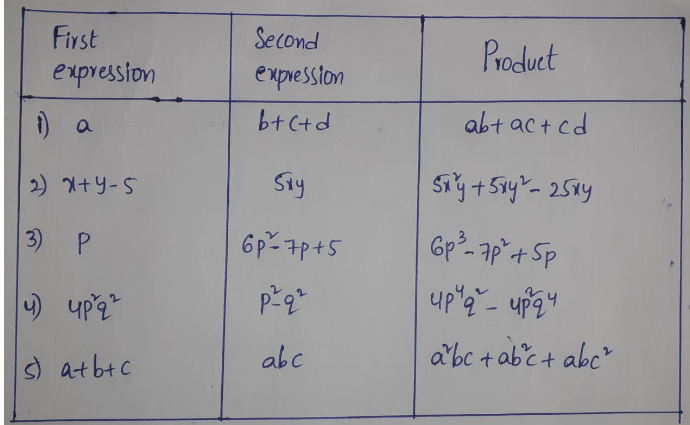 First expression Second expression Product
1) a b+c+d ab+ac+cd
2) x+y-5 5xy 5x²y+5xy²-25xy
3) P 6p²-7p+5 6p³-7p²+5p
4) 4p²q² p²-q² 4p⁴q²-4p²q⁴
5) a+b+c abc a²bc+ab²c+abc²